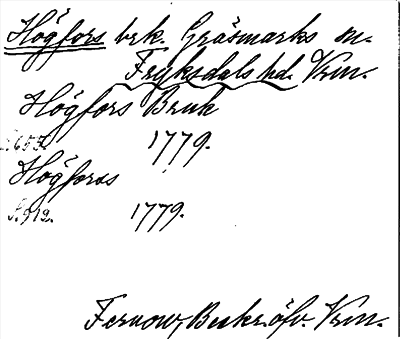 Högfors brk. Gräsmarks sn.
Fryksdals hd. Vrm.
Högfors Bruk
S. 653. 1779.
Högfors
S. 912. 1779.
Fernow, Beskr. öfv. Vrm.